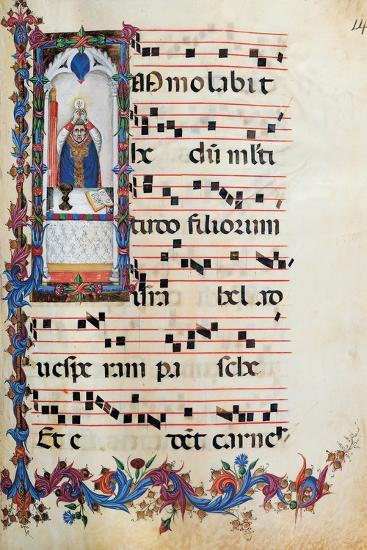 14
IMmolabit
he dũ mlti
tudo filiorum
isra hel ad
uespe ram pa sche
Et e dẽt carnes